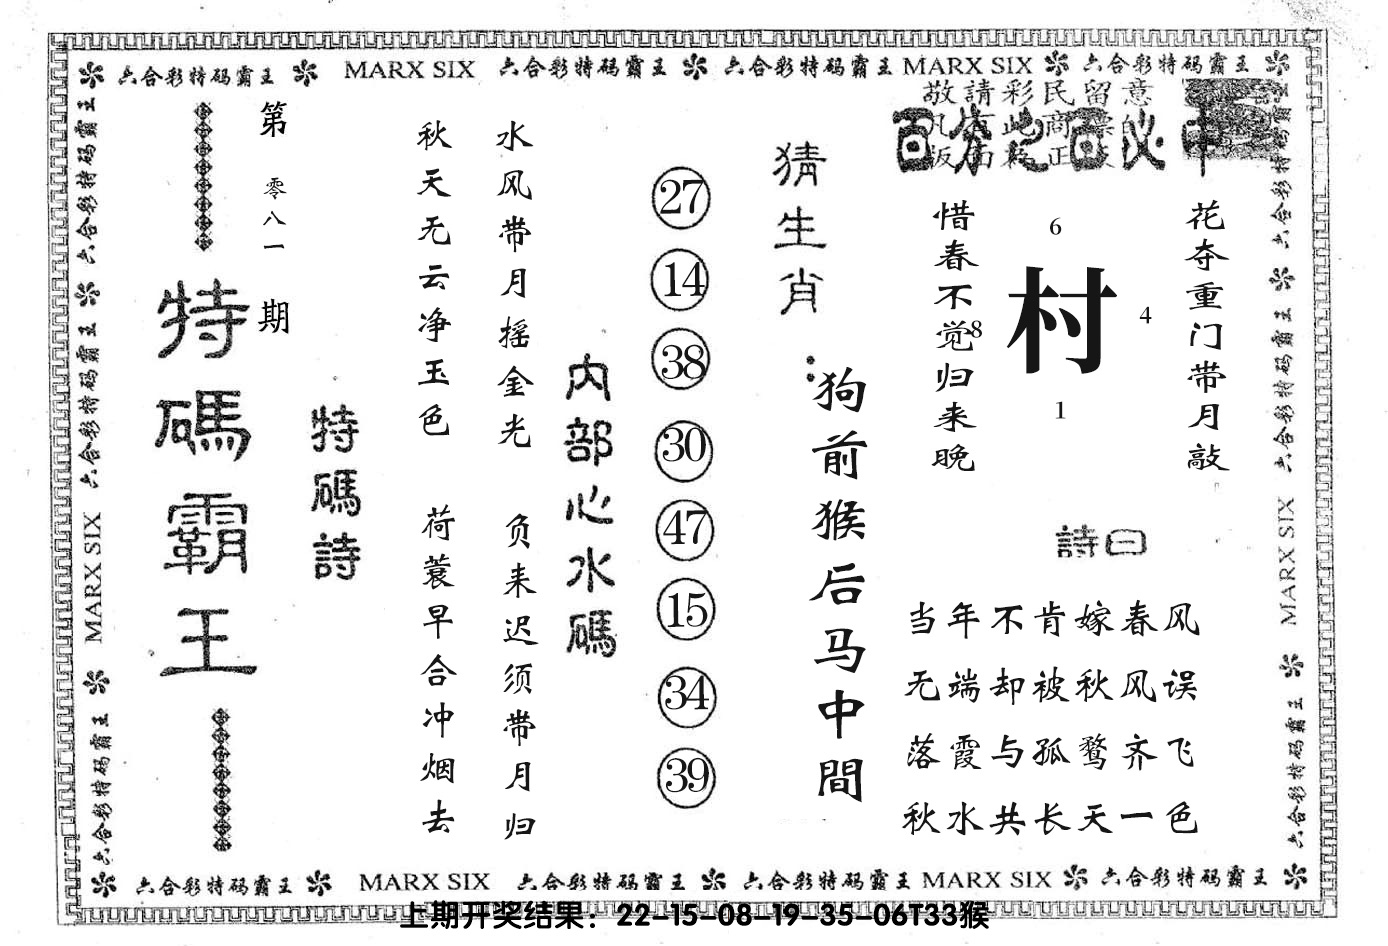 六合彩特码霸王 MARX SIX 六合彩特码霸王 六合彩特码霸王 MARX SIX 六合彩特码霸王
敬請彩民留意
百分之百必中
花夺重门带月敲
惜春不觉归来晚
6
8 村 4
1
詩曰
当年不肯嫁春风
无端却被秋风误
落霞与孤鹜齐飞
秋水共长天一色
猜生肖：
狗前猴后马中間
27
14
38
30
47
15
34
39
内部心水碼
水风带月摇金光
负耒迟须带月归
秋天无云净玉色
荷蓑早合冲烟去
特碼詩
第零八一期
特碼霸王
六合彩特码霸王 六合彩特码霸王 MARX SIX 六合彩特码霸王
六合彩特码霸王 六合彩特码霸王 MARX SIX 六合彩特码霸王
六合彩特码霸王 MARX SIX 六合彩特码霸王 六合彩特码霸王 MARX SIX 六合彩特码霸王
上期开奖结果：22-15-08-19-35-06T33猴